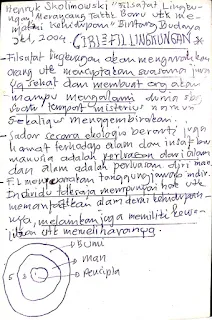 Henryk Skolimowski "Filsafat Lingku-
ngan, Merancang Taktik Baru utk me-
... kehidupan" Bintang Budaya
2004. CIRI2 FIL LINGKUNGAN
- Filsafat lingkungan akan mengarahkan
orang utk menciptakan suasana jiwa
yg sehat dan membuat org akan
mampu memahami dunia sbg
suatu tempat misterius
sekaligus menggembirakan..
- Sadar secara ekologis berarti juga
hormat terhadap alam dan insaf bhw
manusia adalah perluasan dari alam
dan alam adalah perluasan diri man.
F.L mensyaratkan tanggung jawab indiv.
Individu tdk saja mempunyai hak utk
memanfaatkan alam demi kehidupan-
nya, melainkan juga memiliki kewa-
jiban utk memeliharanya.
Bumi
man
pencipta